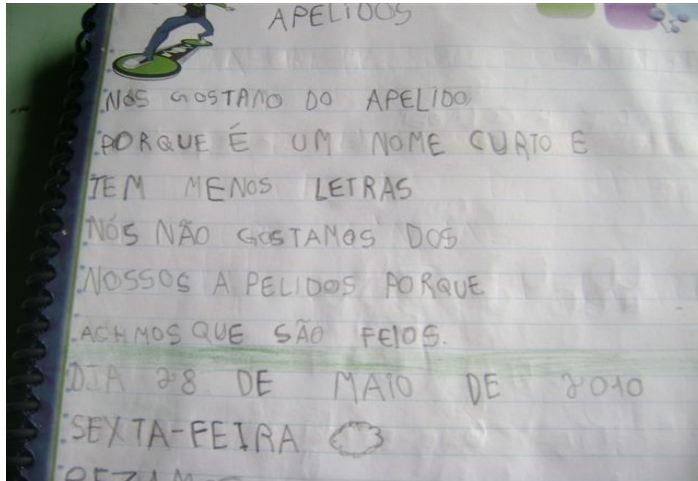 APELIDOS
NÓS GOSTAMO DO APELIDO
PORQUE É UM NOME CURTO E
TEM MENOS LETRAS
NÓS NÃO GOSTAMOS DOS
NOSSOS APELIDOS PORQUE
ACHMOS QUE SÃO FEIOS.
DIA 28 DE MAIO DE 2010
SEXTA-FEIRA